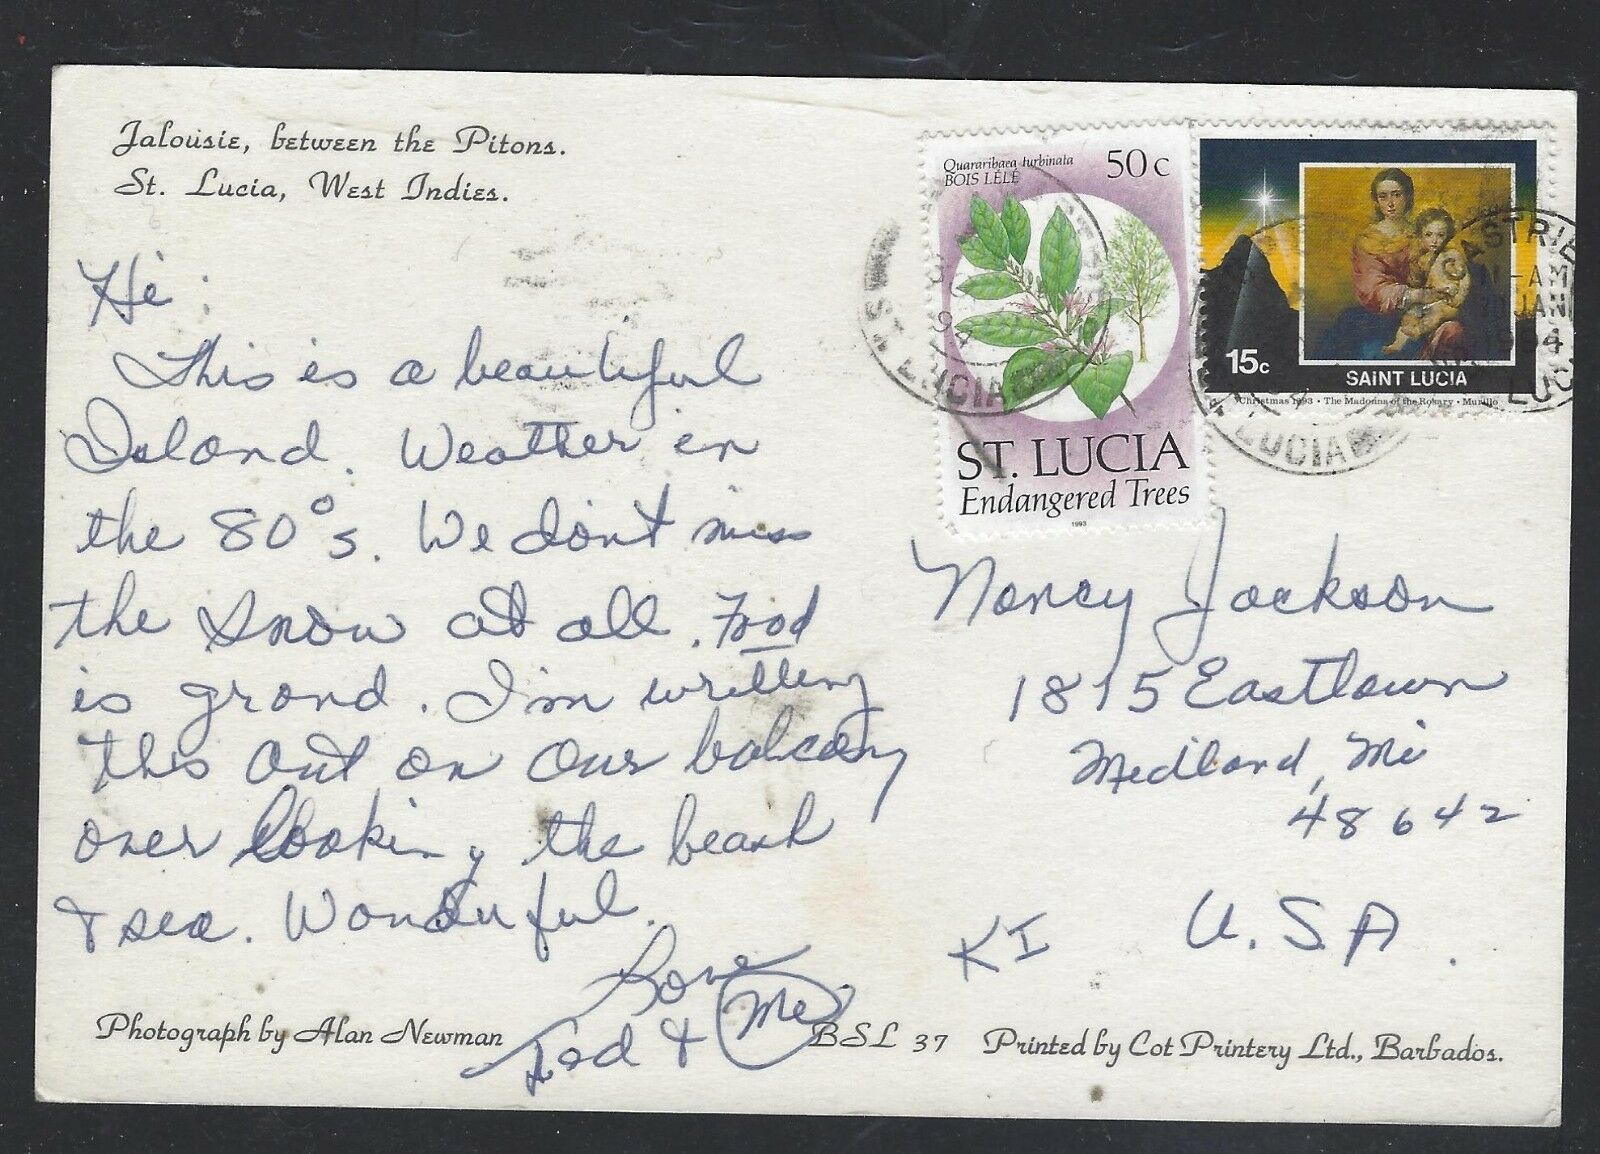 Jalousie, between the Pitons.
St. Lucia, West Indies.
Hi:
This is a beautiful
Island. Weather in
the 80°s. We don't miss
the snow at all. Food
is grand. I'm writting
this out on our balcony
over looking the beach
& sea. Wonderful.
Love
Ted & Me
Photograph by Alan Newman
BSL 37
Printed by Cot Printery Ltd., Barbados.
Quararibaea turbinata
BOIS LÉLÉ
50c
ST. LUCIA
Endangered Trees
1993
15c
SAINT LUCIA
Christmas 1993 • The Madonna of the Rosary • Murillo
CASTRIE
-AM
JAN
1994
ST. LUCIA
LUCIA
LUC
Nancy Jackson
1815 Eastlawn
Midland, Mi
48642
U.S.A.
KI